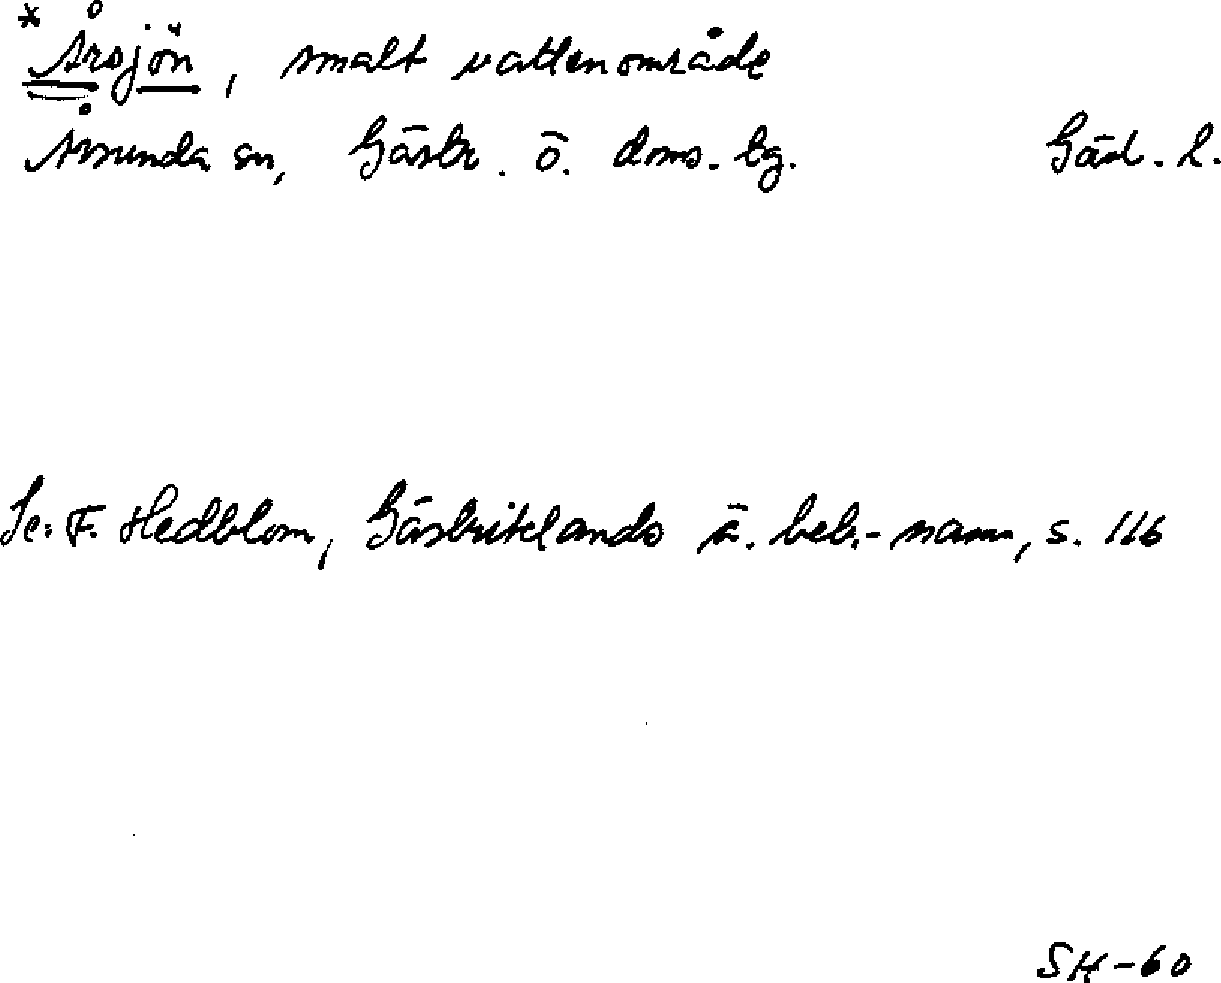 * Årsjön, smalt vattenområde
Årsunda sn, Gästr. ö. doms. bg. Gävl. l.
Se: F. Hedblom, Gästriklands ä. beb.-namn, s. 116
SH-60